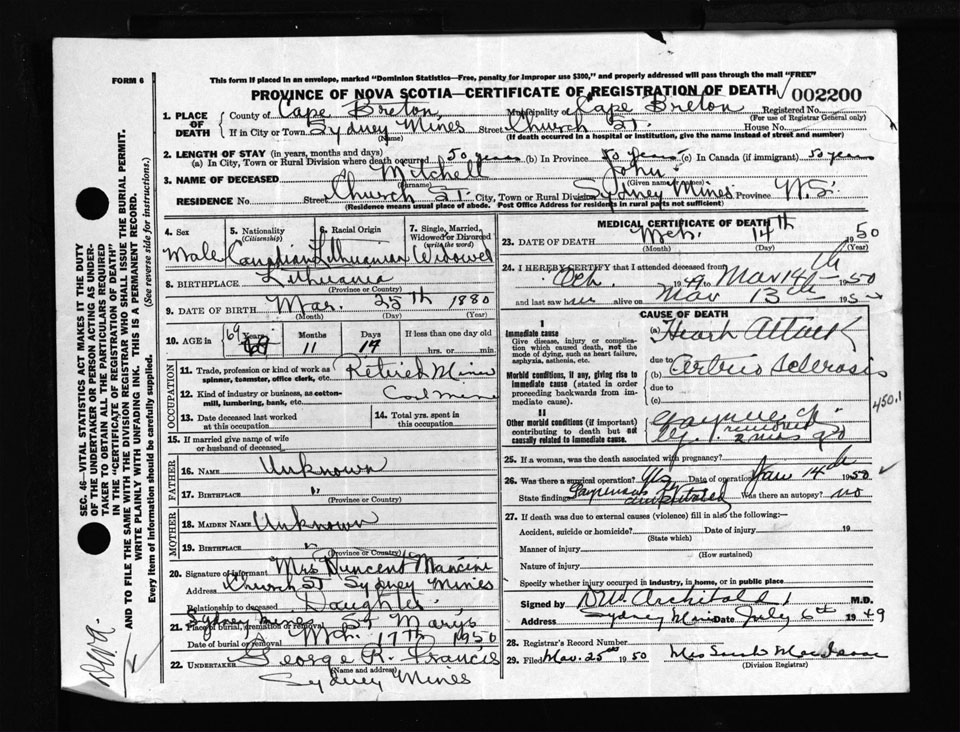 FORM 6
This form if placed in an envelope, marked "Dominion Statistics—Free, penalty for improper use $300," and properly addressed will pass through the mail "FREE"
PROVINCE OF NOVA SCOTIA—CERTIFICATE OF REGISTRATION OF DEATH
002200
1. PLACE OF DEATH
County of Cape Breton, Municipality of Cape Breton Registered No.
(For use of Registrar General only)
If in City or Town Sydney Mines Street Church St. House No.
(Name) (If death occurred in a hospital or institution, give the name instead of street and number)
2. LENGTH OF STAY (in years, months and days)
(a) In City, Town or Rural Division where death occurred 50 years (b) In Province 50 years (c) In Canada (if immigrant) 50 years
3. NAME OF DECEASED Mitchell John
(Surname) (Given names)
RESIDENCE No. Street Church St. City, Town or Rural Division Sydney Mines Province N.S.
(Residence means usual place of abode. Post Office Address for residents in rural parts not sufficient)
4. Sex 5. Nationality (Citizenship) 6. Racial Origin 7. Single, Married, Widowed or Divorced (write the word)
Male Canadian Lithuanian Widowed
8. BIRTHPLACE Lithuania
(Province or Country)
9. DATE OF BIRTH Mar. 25th 1880
(Month) (Day) (Year)
10. AGE in 69 Years Months Days If less than one day old
11 19 hrs. or min.
OCCUPATION
11. Trade, profession or kind of work as spinner, teamster, office clerk, etc. Retired Miner
12. Kind of industry or business, as cotton-mill, lumbering, bank, etc. Coal mine
13. Date deceased last worked at this occupation
14. Total yrs. spent in this occupation
15. If married give name of wife or husband of deceased
FATHER
16. NAME Unknown
17. BIRTHPLACE "
MOTHER
18. MAIDEN NAME Unknown
19. BIRTHPLACE
(Province or Country)
20. Signature of informant Mrs Vincent Mancini
Address Church St Sydney Mines
Relationship to deceased Daughter
21. Place of burial, cremation or removal Sydney Mines St Marys
Date of burial or removal Mch. 17th 1950
22. UNDERTAKER George R. Francis
(Name and address)
Sydney Mines
MEDICAL CERTIFICATE OF DEATH
23. DATE OF DEATH Mch. 14th 1950
(Month) (Day) (Year)
24. I HEREBY CERTIFY that I attended deceased from
1949 to Mar 14th 1950
and last saw him alive on Mar 13th 195
CAUSE OF DEATH
I
Immediate cause
Give disease, injury or complication which caused death, not the mode of dying, such as heart failure, asphyxia, asthenia, etc.
(a) Heart Attack
due to
Morbid conditions, if any, giving rise to immediate cause (stated in order proceeding backwards from immediate cause).
(b) Arterio Sclerosis
due to
(c)
450.1
II
Other morbid conditions (if important) contributing to death but not causally related to immediate cause.
25. If a woman, was the death associated with pregnancy?
26. Was there a surgical operation? Yes Date of operation Jan 14th 1950
State findings amputated Was there an autopsy? no
27. If death was due to external causes (violence) fill in also the following:—
Accident, suicide or homicide? Date of injury 19
(State which)
Manner of injury
(How sustained)
Nature of injury
Specify whether injury occurred in industry, in home, or in public place
Signed by Archibald M.D.
Address Sydney Mines Date July 6th 1949
28. Registrar's Record Number
29. Filed Mar. 25th 1950
(Division Registrar)
SEC. 46—VITAL STATISTICS ACT MAKES IT THE DUTY OF THE UNDERTAKER OR PERSON ACTING AS UNDERTAKER TO OBTAIN ALL THE PARTICULARS REQUIRED IN THE "CERTIFICATE OF REGISTRATION OF DEATH" AND TO FILE THE SAME WITH THE DIVISION REGISTRAR WHO SHALL ISSUE THE BURIAL PERMIT.
WRITE PLAINLY WITH UNFADING INK. THIS IS A PERMANENT RECORD.
Every item of information should be carefully supplied. (See reverse side for instructions.)